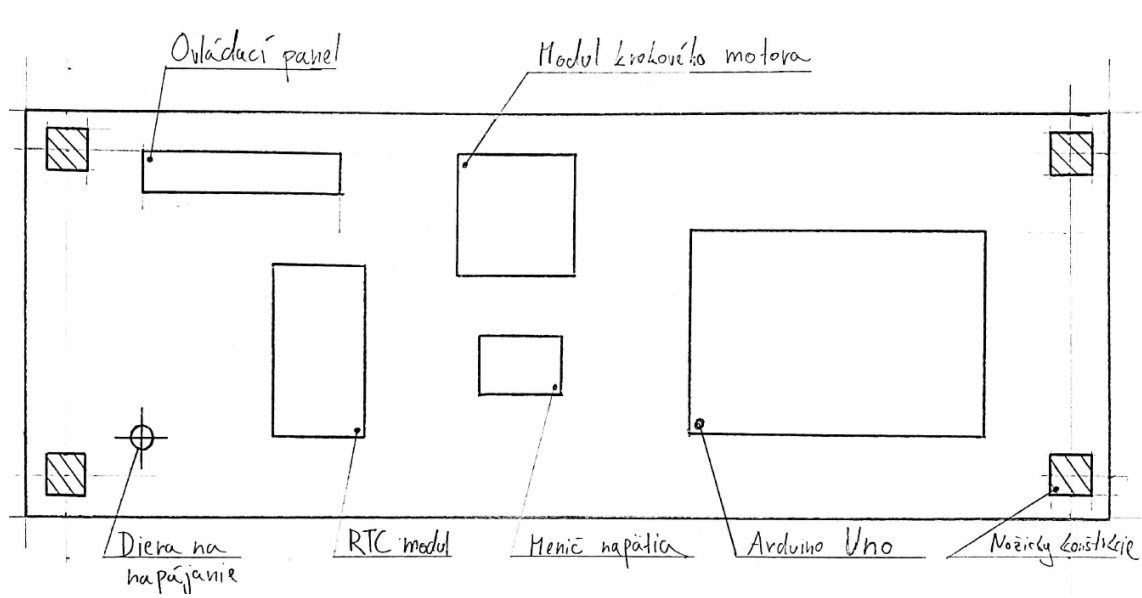 Ovládací panel
Modul krokového motora
Diera na
napájanie
RTC modul
Menič napätia
Arduino Uno
Nožičky konštrkcie